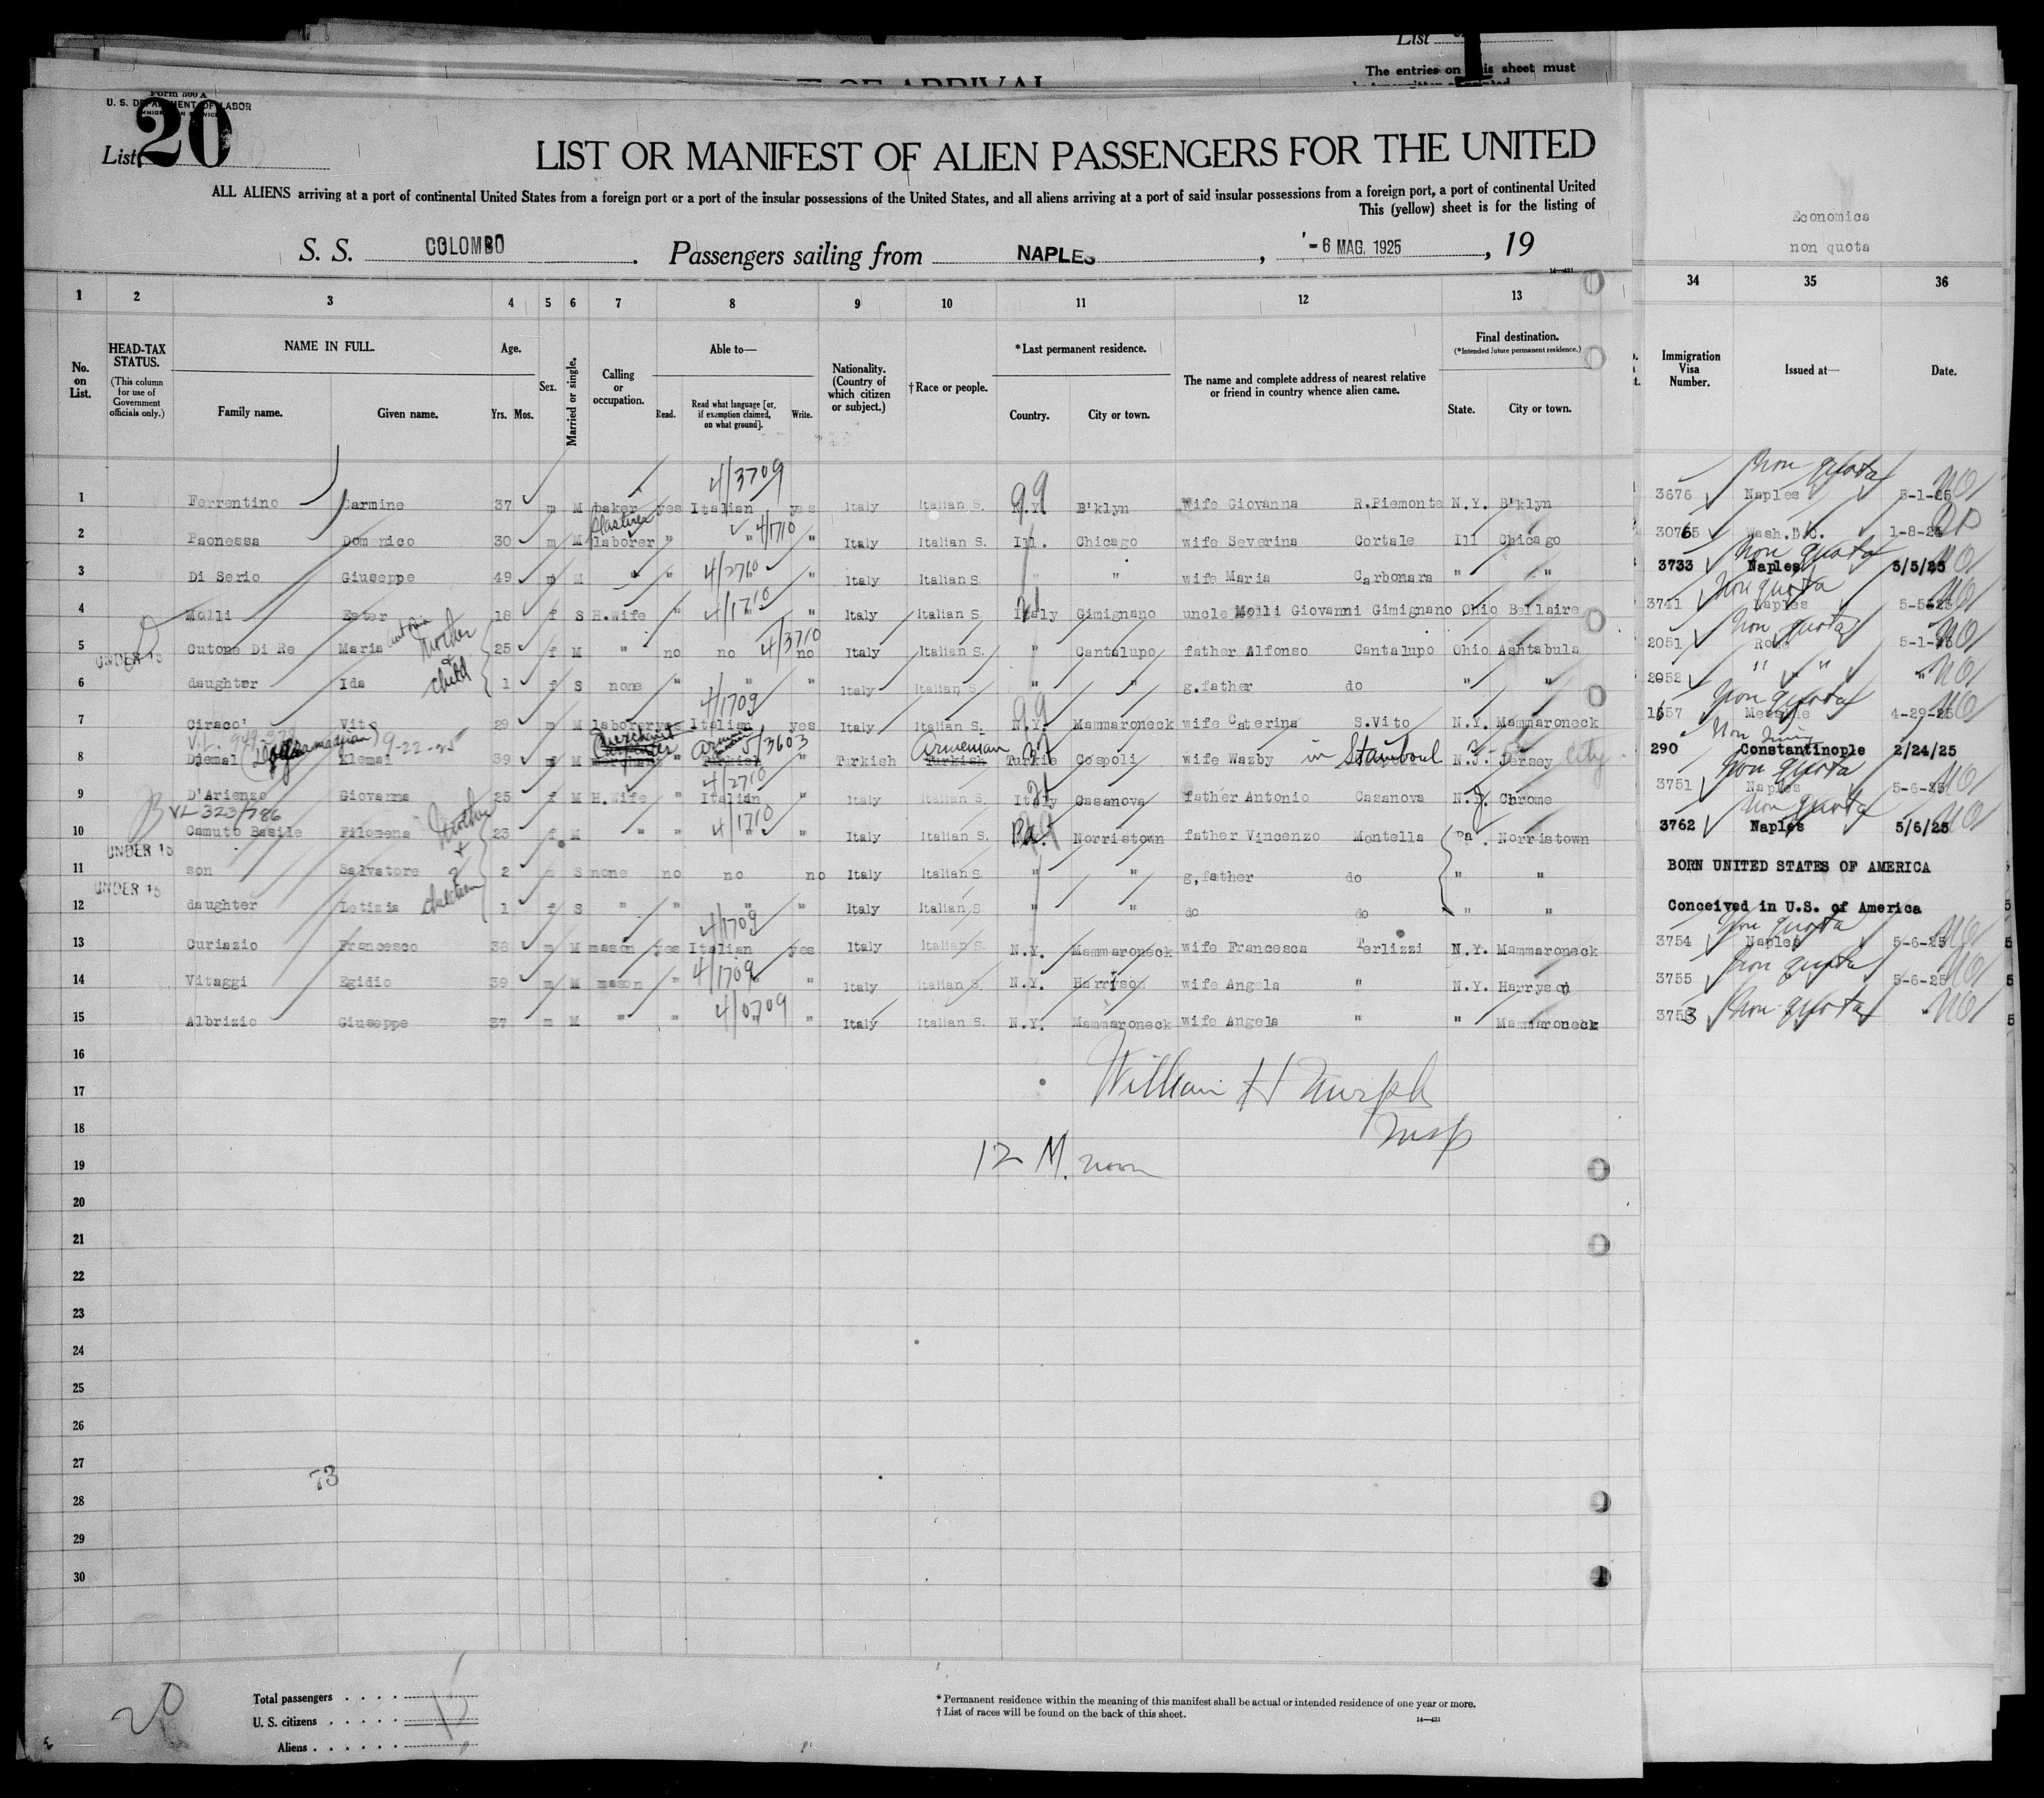 List
The entries on this sheet must
OF ARRIVAL
Form 500 A
U. S. DEPARTMENT OF LABOR
List 20
LIST OR MANIFEST OF ALIEN PASSENGERS FOR THE UNITED
ALL ALIENS arriving at a port of continental United States from a foreign port or a port of the insular possessions of the United States, and all aliens arriving at a port of said insular possessions from a foreign port, a port of continental United
This (yellow) sheet is for the listing of
S. S. COLOMBO. Passengers sailing from NAPLES, - 6 MAG. 1925, 19
Economics
non quota
14—431
1 2 3 4 5 6 7 8 9 10 11 12 13 34 35 36
No. on List.
HEAD-TAX STATUS.
(This column for use of Government officials only.)
NAME IN FULL.
Family name. Given name.
Age.
Yrs. Mos.
Sex.
Married or single.
Calling or occupation.
Able to—
Read. Read what language [or, if exemption claimed, on what ground]. Write.
Nationality. (Country of which citizen or subject.)
†Race or people.
*Last permanent residence.
Country. City or town.
The name and complete address of nearest relative or friend in country whence alien came.
Final destination.
(*Intended future permanent residence.)
State. City or town.
Immigration Visa Number.
Issued at—
Date.
4/3709 99 Non quota NO
1 Ferrentino Carmine 37 m M baker yes Italian yes Italy Italian S. N.Y. B'klyn Wife Giovanna R.Piemonte N.Y. B'klyn 3676 Naples 5-1-25
Plasterer 4/1710
2 Paonessa Domenico 30 m M laborer " " " Italy Italian S. Ill. Chicago wife Severina Cortale Ill Chicago 30765 Wash.D.C. 1-8-24
4/2710 Non quota NO
3 Di Serio Giuseppe 49 m M " " " Italy Italian S. " " wife Maria Carbonara " " 3733 Naples 5/5/25
4/1710 Non quota NO
4 Molli Ester 18 f S H.Wife " " Italy Italian S. Italy Gimignano uncle Molli Giovanni Gimignano Ohio Bellaire 3741 Naples 5-5-25
UNDER 16 Mother + child 4/3710 Non quota NO
5 Cutone Di Re Maria 25 f M " no no no Italy Italian S. " Cantalupo father Alfonso Cantalupo Ohio Ashtabula 2051 Rome 5-1-25
6 daughter Ida 1 f S none " " " Italy Italian S. " " g.father do " " 2052 " " " NO
4/1709 99 Non quota NO
7 Ciraco' Vito 29 m M laborer yes Italian yes Italy Italian S. N.Y. Mammaroneck wife Caterina S.Vito N.Y. Mammaroneck 1657 4-29-25
9-22-25 Merchant 5/3603 Armenian
8 Djemal Klemai 39 m M Turkish " Turkish Turkish Turkie Cospoli wife Wazby in Stamboul N.J. Jersey City 290 Constantinople 2/24/25
4/2710 Non quota NO
9 D'Arienzo Giovanna 25 f M H.Wife " Italian " Italy Italian S. Italy Casanova father Antonio Casanova N.J. Chrome 3751 Naples 5-6-25
VL-323/786 Mother + 2 children 4/1710 Non quota NO
10 Camuto Basile Filomena 23 f M " " " Italy Italian S. Pa. Norristown father Vincenzo Montella Pa. Norristown 3762 Naples 5/6/25
UNDER 16
11 son Salvatore 2 m S none no no no Italy Italian S. " " g,father do " " BORN UNITED STATES OF AMERICA
UNDER 16
12 daughter Letizia 1 f S " " " " Italy Italian S. " " do do " " Conceived in U.S. of America
4/1709 Non quota NO
13 Curiazio Francesco 38 m M mason yes Italian yes Italy Italian S. N.Y. Mammaroneck wife Francesca Terlizzi N.Y. Mammaroneck 3754 Naples 5-6-25
4/1709 Non quota NO
14 Vitaggi Egidio 39 m M mason " " " Italy Italian S. N.Y. Harryson wife Angela " N.Y. Harryson 3755 5-6-25
4/0709 Non quota NO
15 Albrizio Giuseppe 37 m M " " " " Italy Italian S. N.Y. Mammaroneck wife Angela " " Mammaroneck 3753 "
16
17 William H Murph
18 Insp
19 12 M. noon
20
21
22
23
24
25
26
27 73
28
29
30
20
Total passengers . . . . 15
U. S. citizens . . . . .
Aliens . . . . . .
* Permanent residence within the meaning of this manifest shall be actual or intended residence of one year or more.
† List of races will be found on the back of this sheet.
14—431